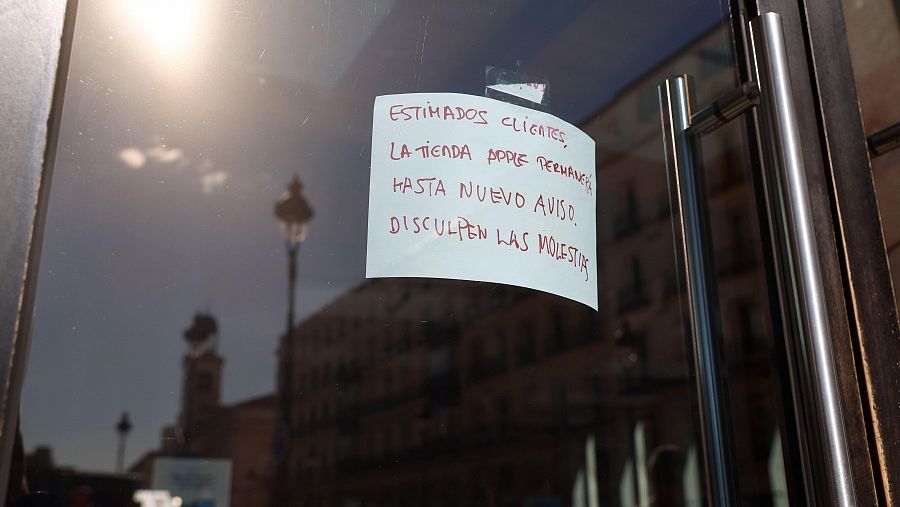 ESTIMADOS CLIENTES,
LA TIENDA APPLE PERMANERÁ
HASTA NUEVO AVISO.
DISCULPEN LAS MOLESTIAS